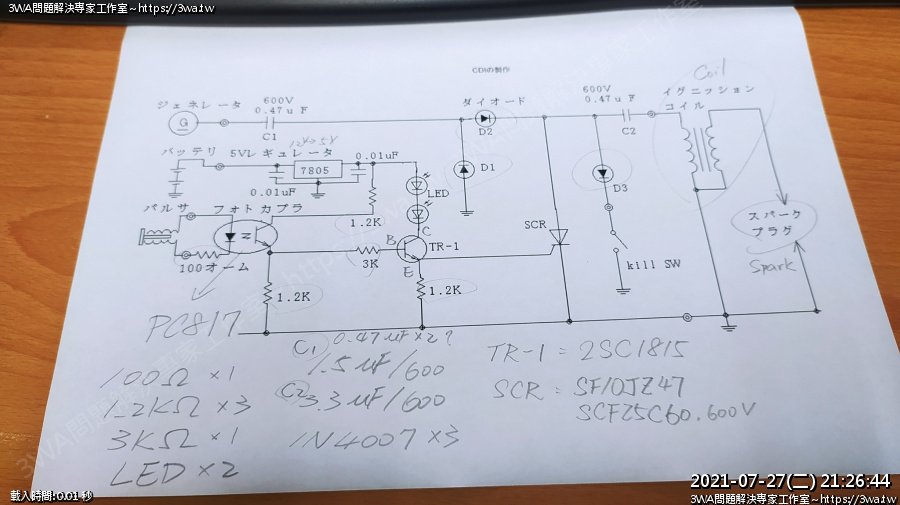 3WA問題解決專家工作室~https://3wa.tw
3WA問題解決專家工作室~https://3wa.tw
CDIの制作
Coil
ジェネレータ
600V
0.47uF
G
C1
ダイオード
D2
600V
0.47uF
C2
イグニッション
コイル
バッテリ
5Vレギュレータ
12V→5V
7805
0.01uF
0.01uF
LED
D1
D3
パルサ
フォトカプラ
1.2K
C
B
TR-1
E
SCR
スパーク
プラグ
Spark
100オーム
3K
kill SW
1.2K
1.2K
PC817
C1 0.47uF×2?
1.5uF/600
C2 3.3uF/600
1N4007×3
100Ω×1
1.2KΩ×3
3KΩ×1
LED×2
TR-1=2SC1815
SCR:SF10JZ47
SCF25C60.600V
載入時間:0.01 秒
2021-07-27(二) 21:26:44
3WA問題解決專家工作室~https://3wa.tw